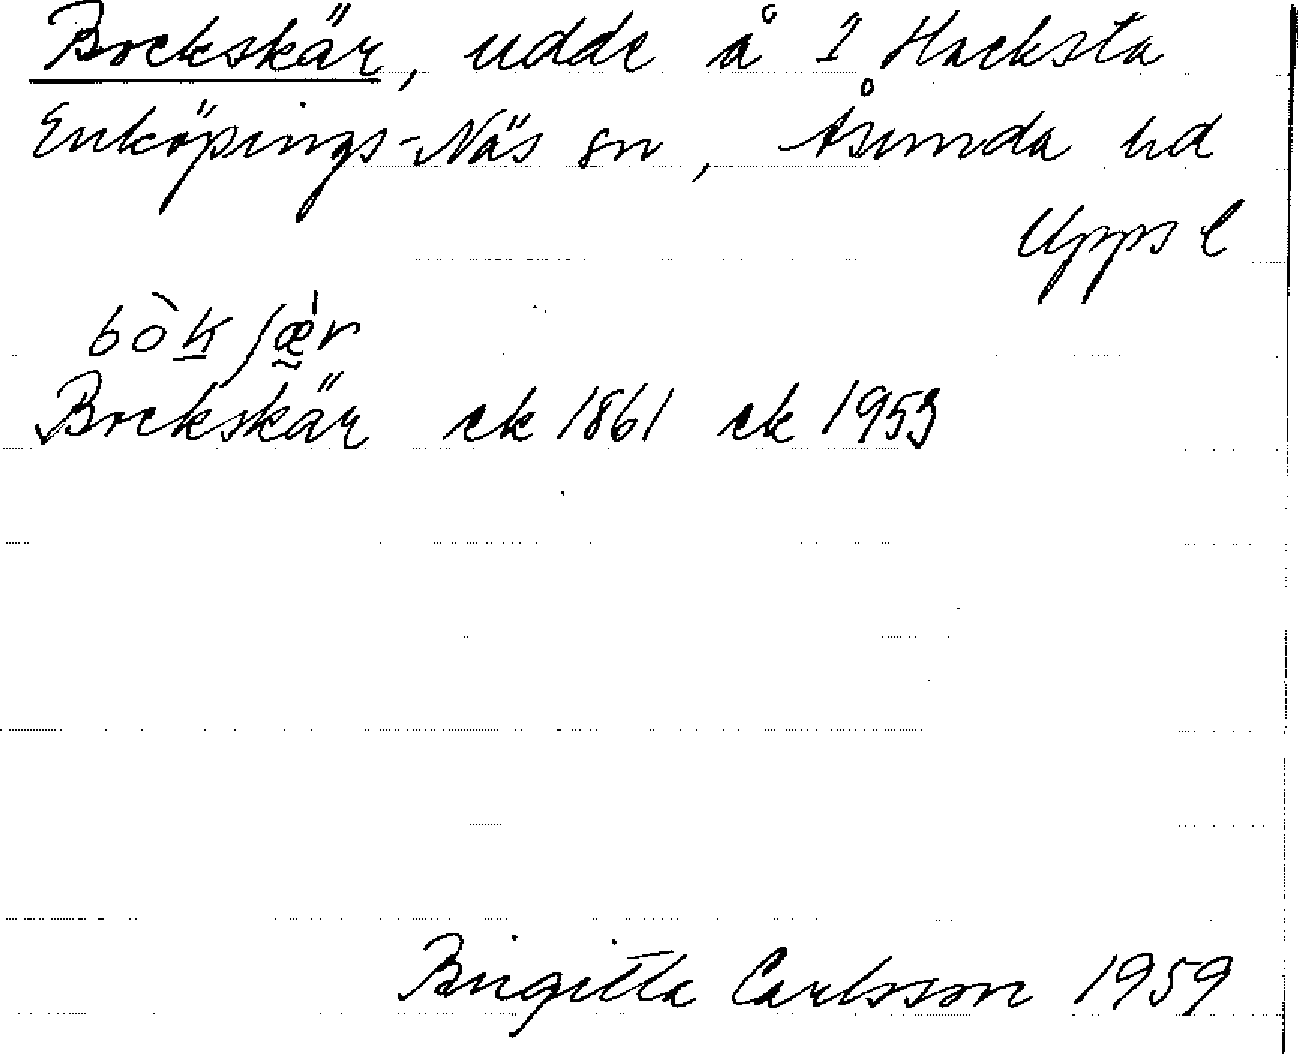 Bockskär, udde å 1 Hacksta
Enköpings-Näs sn, Åsunda hd
Upps l
bòkʃæ̀r
Bockskär ek 1861 ek 1953
Birgitta Carlsson 1959